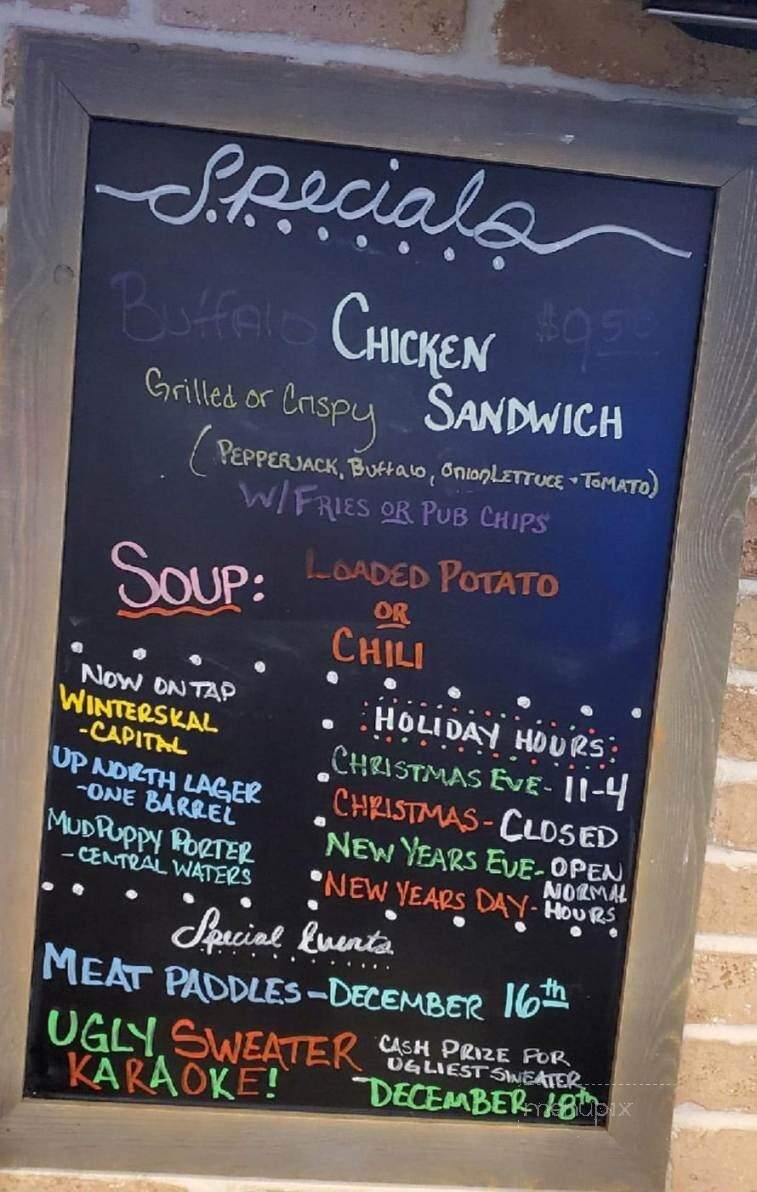 Specials
Buffalo CHICKEN $9.50
Grilled or Crispy SANDWICH
(PEPPERJACK, Buffalo, Onion LETTUCE + TOMATO)
W/ FRIES OR PUB CHIPS
SOUP: LOADED POTATO
OR
CHILI
NOW ON TAP
WINTERSKAL
-CAPITAL
UP NORTH LAGER
-ONE BARREL
MUDPUPPY PORTER
-CENTRAL WATERS
HOLIDAY HOURS:
CHRISTMAS EVE- 11-4
CHRISTMAS- CLOSED
NEW YEARS EVE- OPEN
NEW YEARS DAY- NORMAL
HOURS
Special Events
MEAT PADDLES - DECEMBER 16th
UGLY SWEATER
KARAOKE!
CASH PRIZE FOR
UGLIEST SWEATER
DECEMBER 18th
menupix